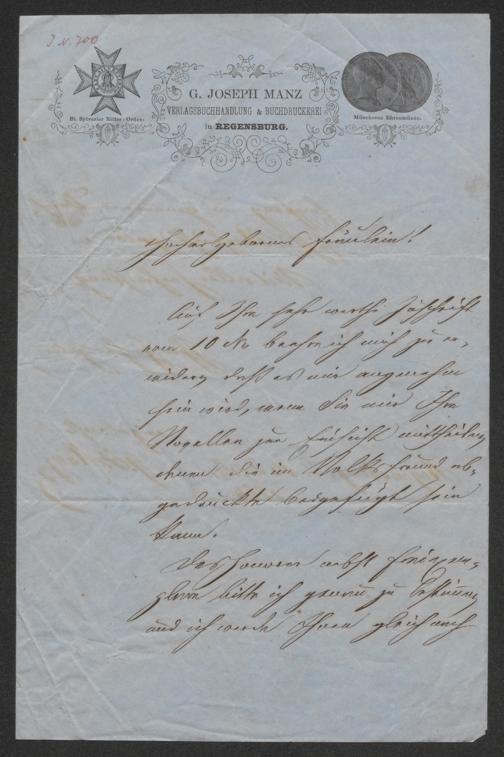 J. N. 700
G. JOSEPH MANZ
VERLAGSBUCHHANDLUNG & BUCHDRUCKEREI
in REGENSBURG.
Bl. Sylvester Ritter-Orden.
Münchener Ehrenmünze.
Hochgeborenes Fräulein!
Auf Ihre sehr werthe Zuschrift
vom 10 beehre ich mich zu er-
widern daß es mir angenehm
sein wird, wenn Sie mir Ihre
Novellen zur Einsicht mittheilen,
denen die im Volksfreund ab-
gedruckte beigefügt sein
kann.
Das Honorar nebst Freiexem-
plaren bitte ich genau zu bestimmen,
und ich werde Ihnen gleich nach